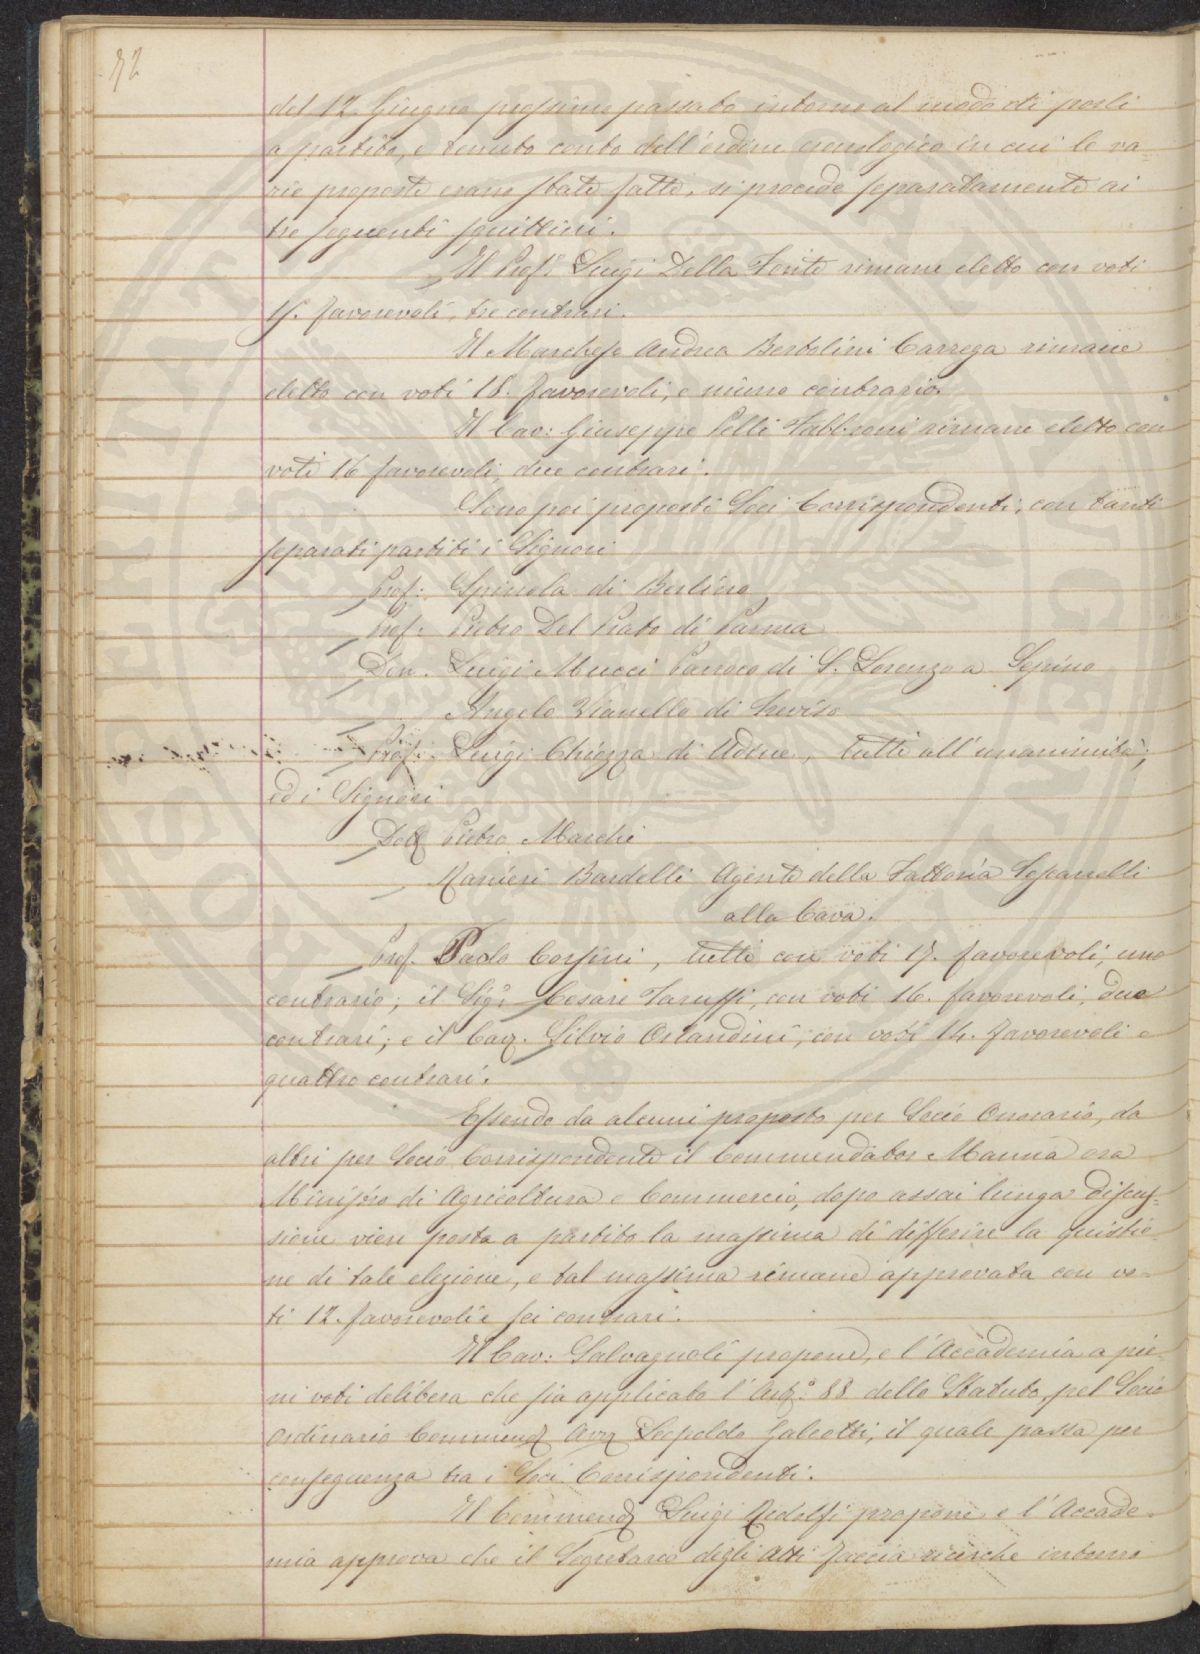 72
del 12. Giugno prossimo passato intorno al modo di porli
a partito, e tenuto conto dell'ordine cronologico in cui le va
rie proposte erano state fatte, si procede separatamente ai
tre seguenti squittini.
Il Prof.re Luigi Della Fonte rimane eletto con voti
15. favorevoli, tre contrari.
Il Marchese Andrea Bertolini Carrega rimane
eletto con voti 18. favorevoli, e niuno contrario.
Il Cav: Giuseppe Pelli Fabbroni rimane eletto con
voti 16 favorevoli, due contrari.
Sono poi proposti Soci Corrispondenti, con tanti
separati partiti i Signori
Prof: Spinola di Berlino
Prof: Pietro Del Prato di Parma
Don. Luigi Mucci Parroco di S. Lorenzo a Sepino
Angelo Vianello di Treviso
Prof: Luigi Chiozza di Udine, tutti all'unanimità;
ed i Signori
Dott Pietro Marchi
Ranieri Bardelli Agente della Fattoria
alla Cava.
Prof. Paolo Corsini, tutti con voti 17. favorevoli, uno
contrario; il Sig.r Cesare Taruffi, con voti 16. favorevoli, due
contrari; e il Cav. Silvio Orlandini, con voti 14. favorevoli e
quattro contrari.
Essendo da alcuni proposto per Socio Onorario, da
altri per Socio Corrispondente il Commendator Manna ora
Ministro di Agricoltura e Commercio, dopo assai lunga discus-
sione vien posta a partito la massima di differire la quistio-
ne di tale elezione, e tal massima rimane approvata con vo-
ti 12. favorevoli e sei contrari.
Il Cav: Salvagnoli propone, e l'Accademia a pie-
ni voti delibera che sia applicato l'Art.o 88 dello Statuto, pel Socio
Ordinario Commend Avv Leopoldo Galeotti, il quale passa per
conseguenza tra i Soci Corrispondenti.
Il Commend Luigi Ridolfi propone e l'Accade-
mia approva che il Segretario degli Atti faccia ricerche intorno